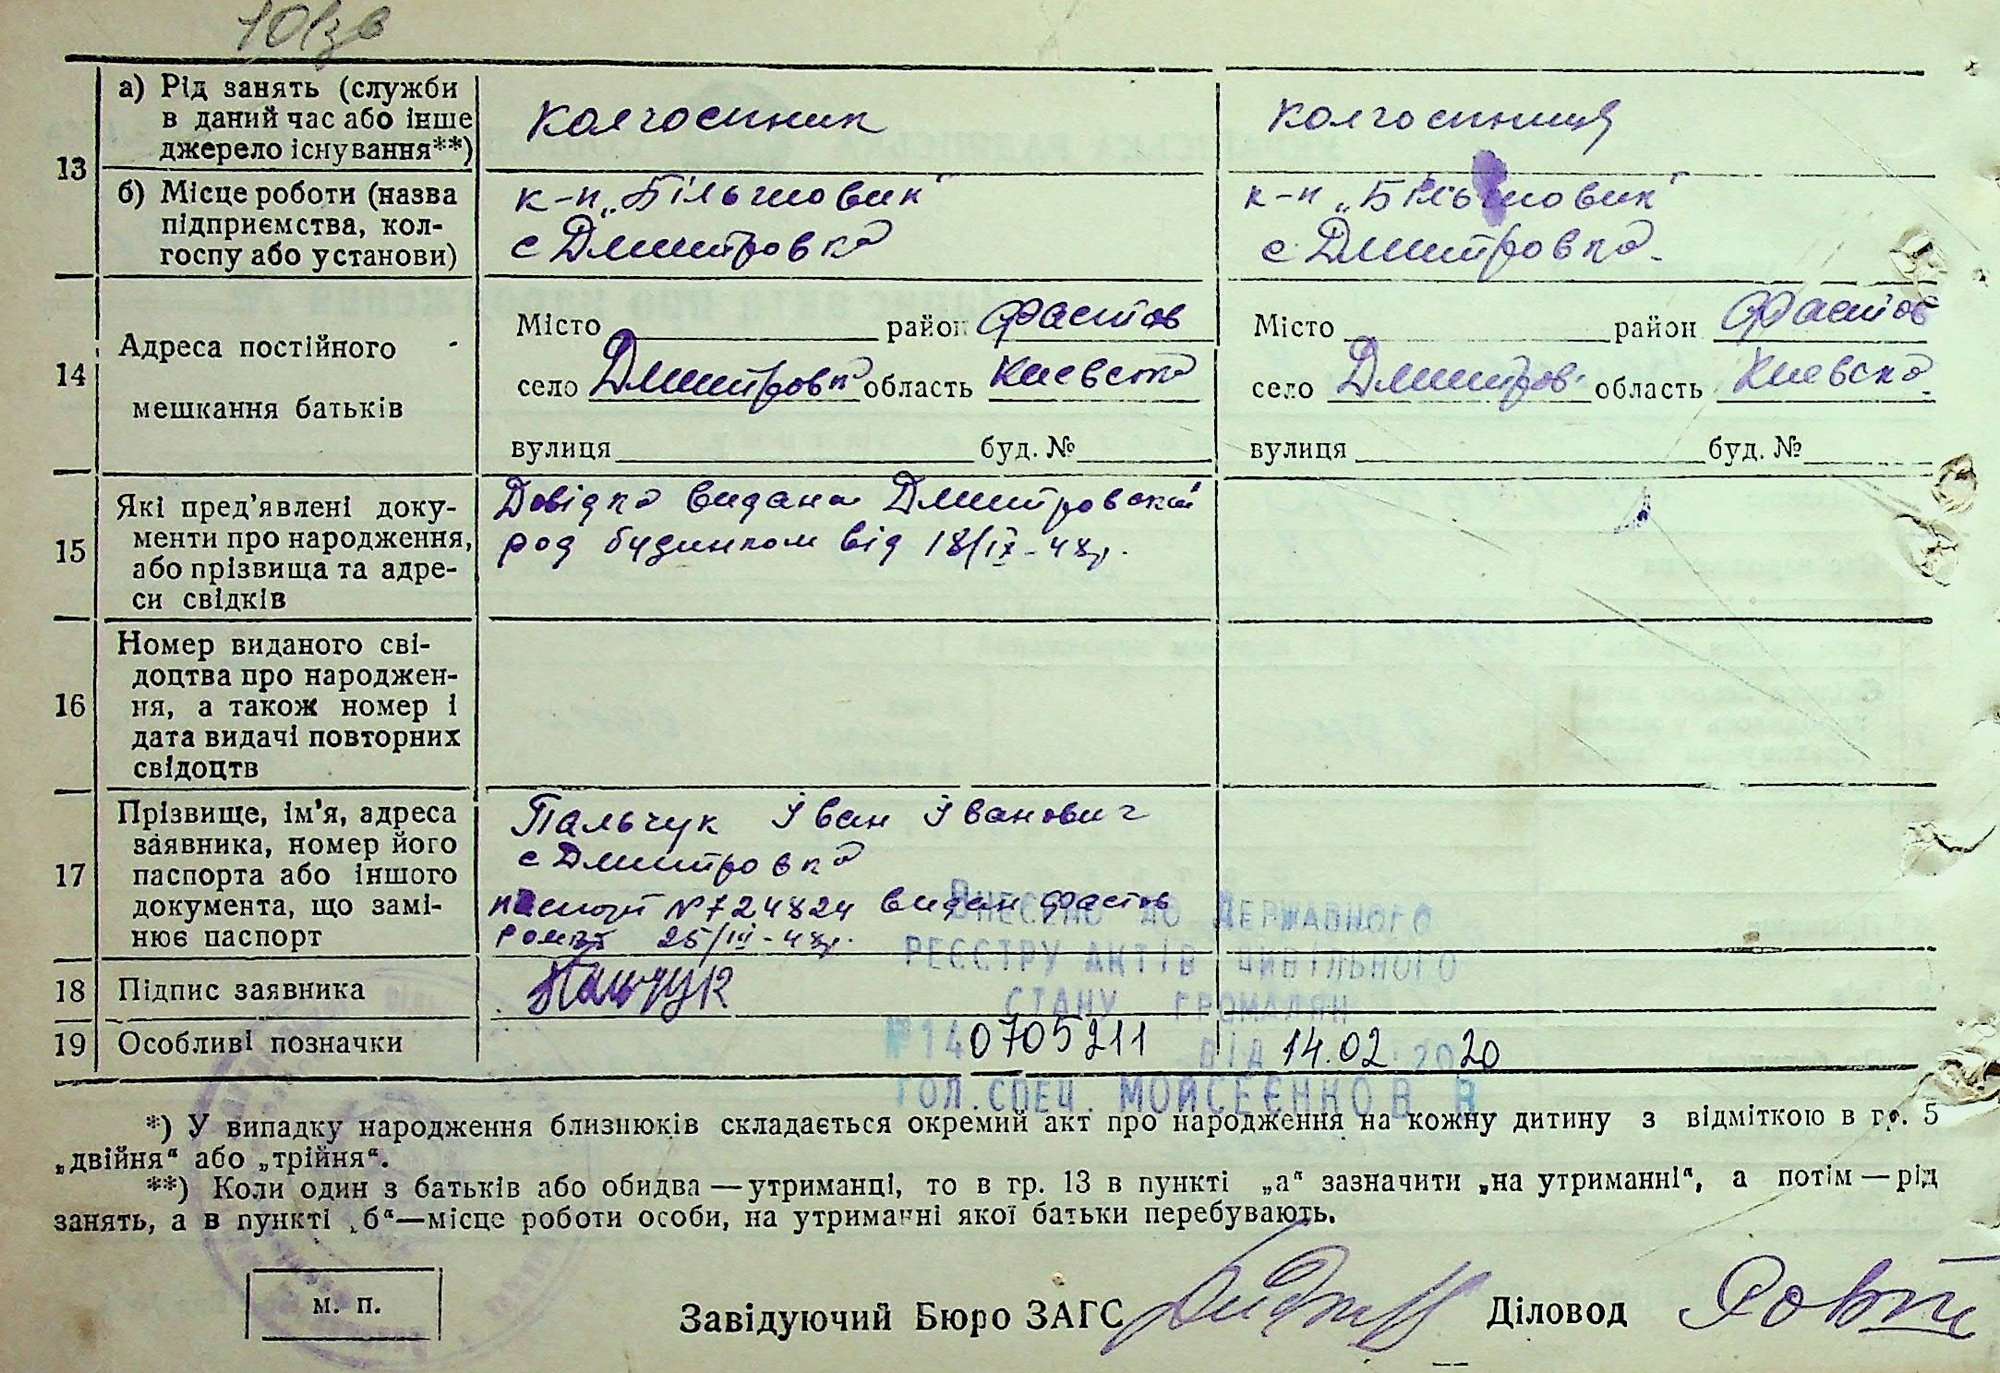 101зв
13
а) Рід занять (служби
в даний час або інше
джерело існування**)
Колгоспник
Колгоспниця
б) Місце роботи (назва
підприємства, кол-
госпу або установи)
к-п „Більшовик"
с Дмитровка
к-п „Більшовик"
с Дмитровка
14
Адреса постійного
мешкання батьків
Місто район Фастов
село Дмитровка область Киевска
вулиця буд. №
Місто район Фастов
село Дмитров область Киевска
вулиця буд. №
15
Які пред'явлені доку-
менти про народження,
або прізвища та адре-
си свідків
Довідка видана Дмитровской
род будинком від 18/IX-48р.
16
Номер виданого сві-
доцтва про народжен-
ня, а також номер і
дата видачі повторних
свідоцтв
17
Прізвище, ім'я, адреса
заявника, номер його
паспорта або іншого
документа, що замі-
нює паспорт
Пальчук Іван Іванович
с Дмитровка
паспорт №724824 видан Фастов
25/III-48р.
18
Підпис заявника
Пальчук
19
Особливі позначки
ВНЕСЕНО ДО ДЕРЖАВНОГО
РЕЄСТРУ АКТІВ ЦИВІЛЬНОГО
СТАНУ ГРОМАДЯН
№140705211 ВІД 14.02.2020
ГОЛ.СПЕЦ. МОЙСЕЄНКО В В
*) У випадку народження близнюків складається окремий акт про народження на кожну дитину з відміткою в гр. 5
„двійня" або „трійня".
**) Коли один з батьків або обидва—утриманці, то в гр. 13 в пункті „а" зазначити „на утриманні", а потім—рід
занять, а в пункті „б"—місце роботи особи, на утриманні якої батьки перебувають.
м. п.
Завідуючий Бюро ЗАГС
Діловод